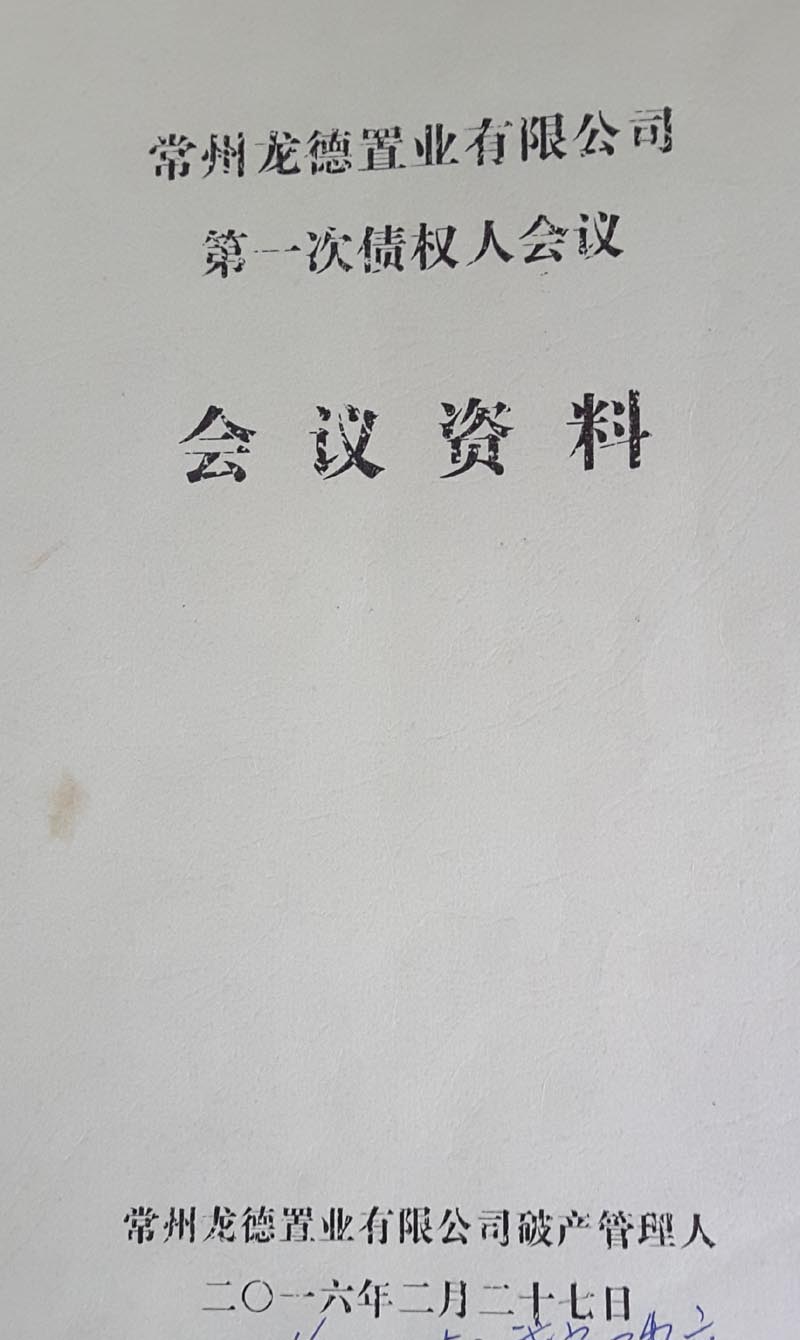 常州龙德置业有限公司
第一次债权人会议
会议资料
常州龙德置业有限公司破产管理人
二〇一六年二月二十七日